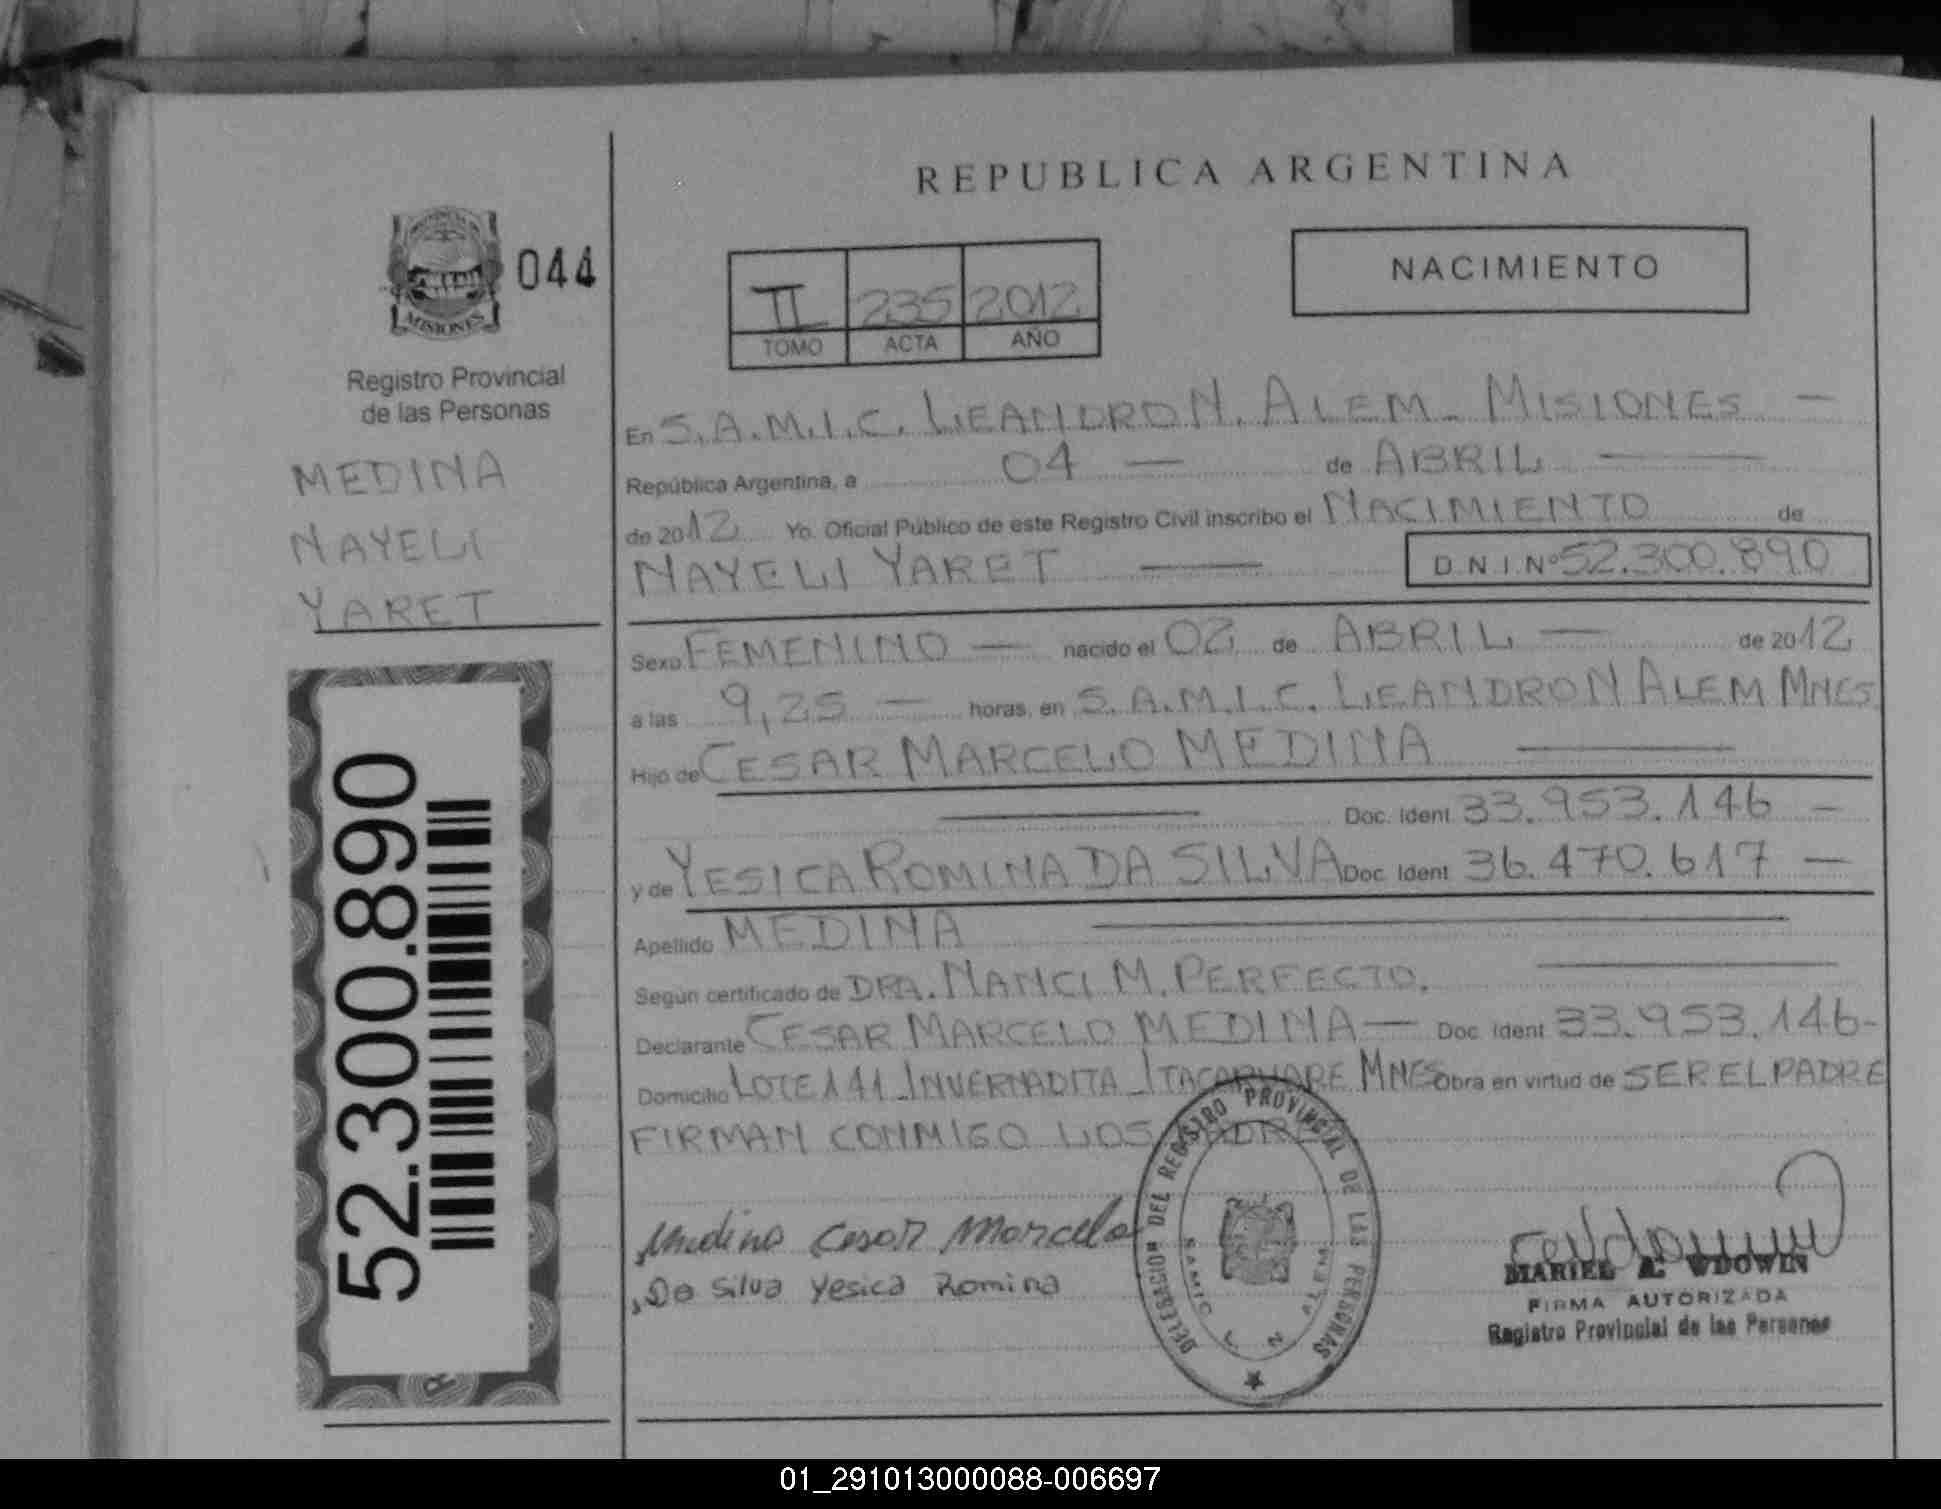 REPUBLICA ARGENTINA
MISIONES
044
Registro Provincial
de las Personas
MEDINA
NAYELI
YARET
52.300.890
II 235 2012
TOMO ACTA AÑO
NACIMIENTO
En S.A.M.I.C. LEANDRO N. ALEM - MISIONES —
República Argentina, a 04 — de ABRIL —
de 2012 Yo. Oficial Público de este Registro Civil inscribo el NACIMIENTO de
NAYELI YARET — D.N.I.Nº 52.300.890
Sexo FEMENINO — nacido el 02 de ABRIL — de 2012
a las 9,25 — horas, en S.A.M.I.C. LEANDRO N ALEM MNES
Hijo de CESAR MARCELO MEDINA —
— Doc. Ident 33.953.146 —
y de YESICA ROMINA DA SILVA Doc. Ident 36.470.617 —
Apellido MEDINA —
Según certificado de DRA. NANCI M. PERFECTO. —
Declarante CESAR MARCELO MEDINA — Doc. Ident 33.953.146-
Domicilio LOTE 141 - INVERNADITA - ITACARUARE MNES Obra en virtud de SER EL PADRE
FIRMAN CONMIGO LOS PADRES
Medina Cesar Marcelo
Da Silva Yesica Romina
DELEGACION DEL REGISTRO PROVINCIAL DE LAS PERSONAS
SAMIC L N ALEM
MARIEL A. WDOWIN
FIRMA AUTORIZADA
Registro Provincial de las Personas
01_291013000088-006697